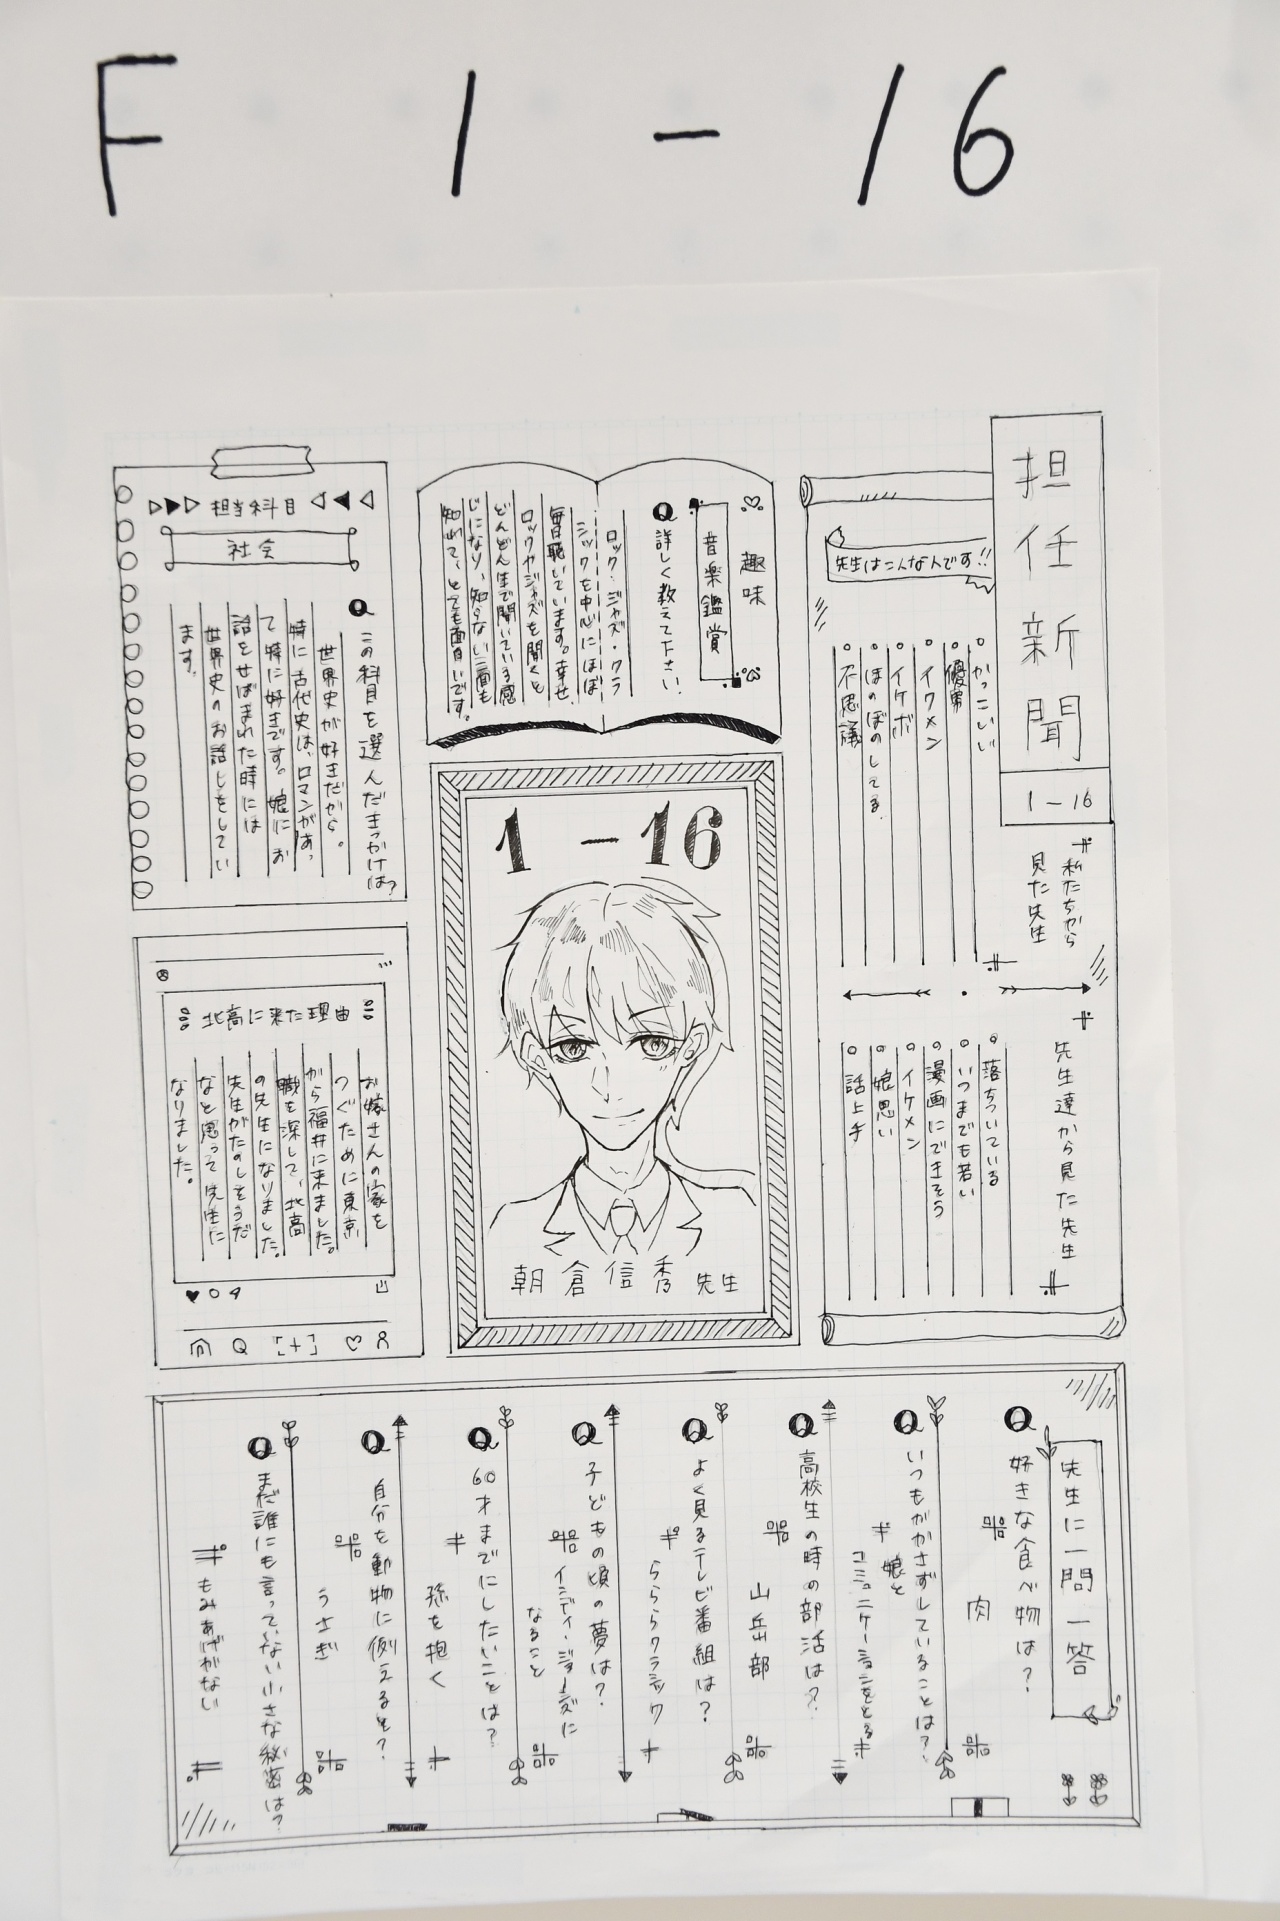 F 1-16
担任新聞
1-16
先生はこんな人です!!
私たちから
見た先生
かっこいい
優男
イケメン
イケボ
ほのぼのしてる
不思議
先生達から見た先生
落ちついている
いつまでも若い
漫画にできそう
イケメン
娘思い
話上手
趣味
音楽鑑賞
Q 詳しく教えて下さい!
ロック・ジャズ・クラ
シックを中心にほぼ
毎日聴いています。幸せ。
ロックやジャズを聞くと
どんどん生で聞いている感
じになり、知らない一面も
知れて、とても面白いです。
1-16
朝倉信秀先生
担当科目
社会
Q この科目を選んだきっかけは?
世界史が好きだから。
特に古代史は、ロマンがあっ
て特に好きです。娘にお
話をせばまれた時には
世界史のお話しをしてい
ます。
北高に来た理由
お嫁さんの家を
つぐために東京
から福井に来ました。
職を深して、北高
の先生になりました。
先生がたのしそうだ
なと思って先生に
なりました。
先生に一問一答
Q 好きな食べ物は?
肉
Q いつもかかさずしていることは?
娘と
コミュニケーションをとる
Q 高校生の時の部活は?
山岳部
Q よく見るテレビ番組は?
らららクラシック
Q 子どもの頃の夢は?
インディ・ジョーンズに
なること
Q 60才までにしたいことは?
孫を抱く
Q 自分を動物に例えると?
うさぎ
Q まだ誰にも言っていない小さな秘密は?
もみあげがない